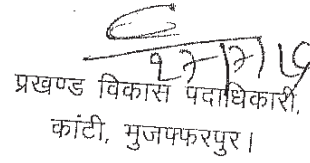 प्रखण्ड विकास पदाधिकारी,
कांटी, मुजफ्फरपुर।